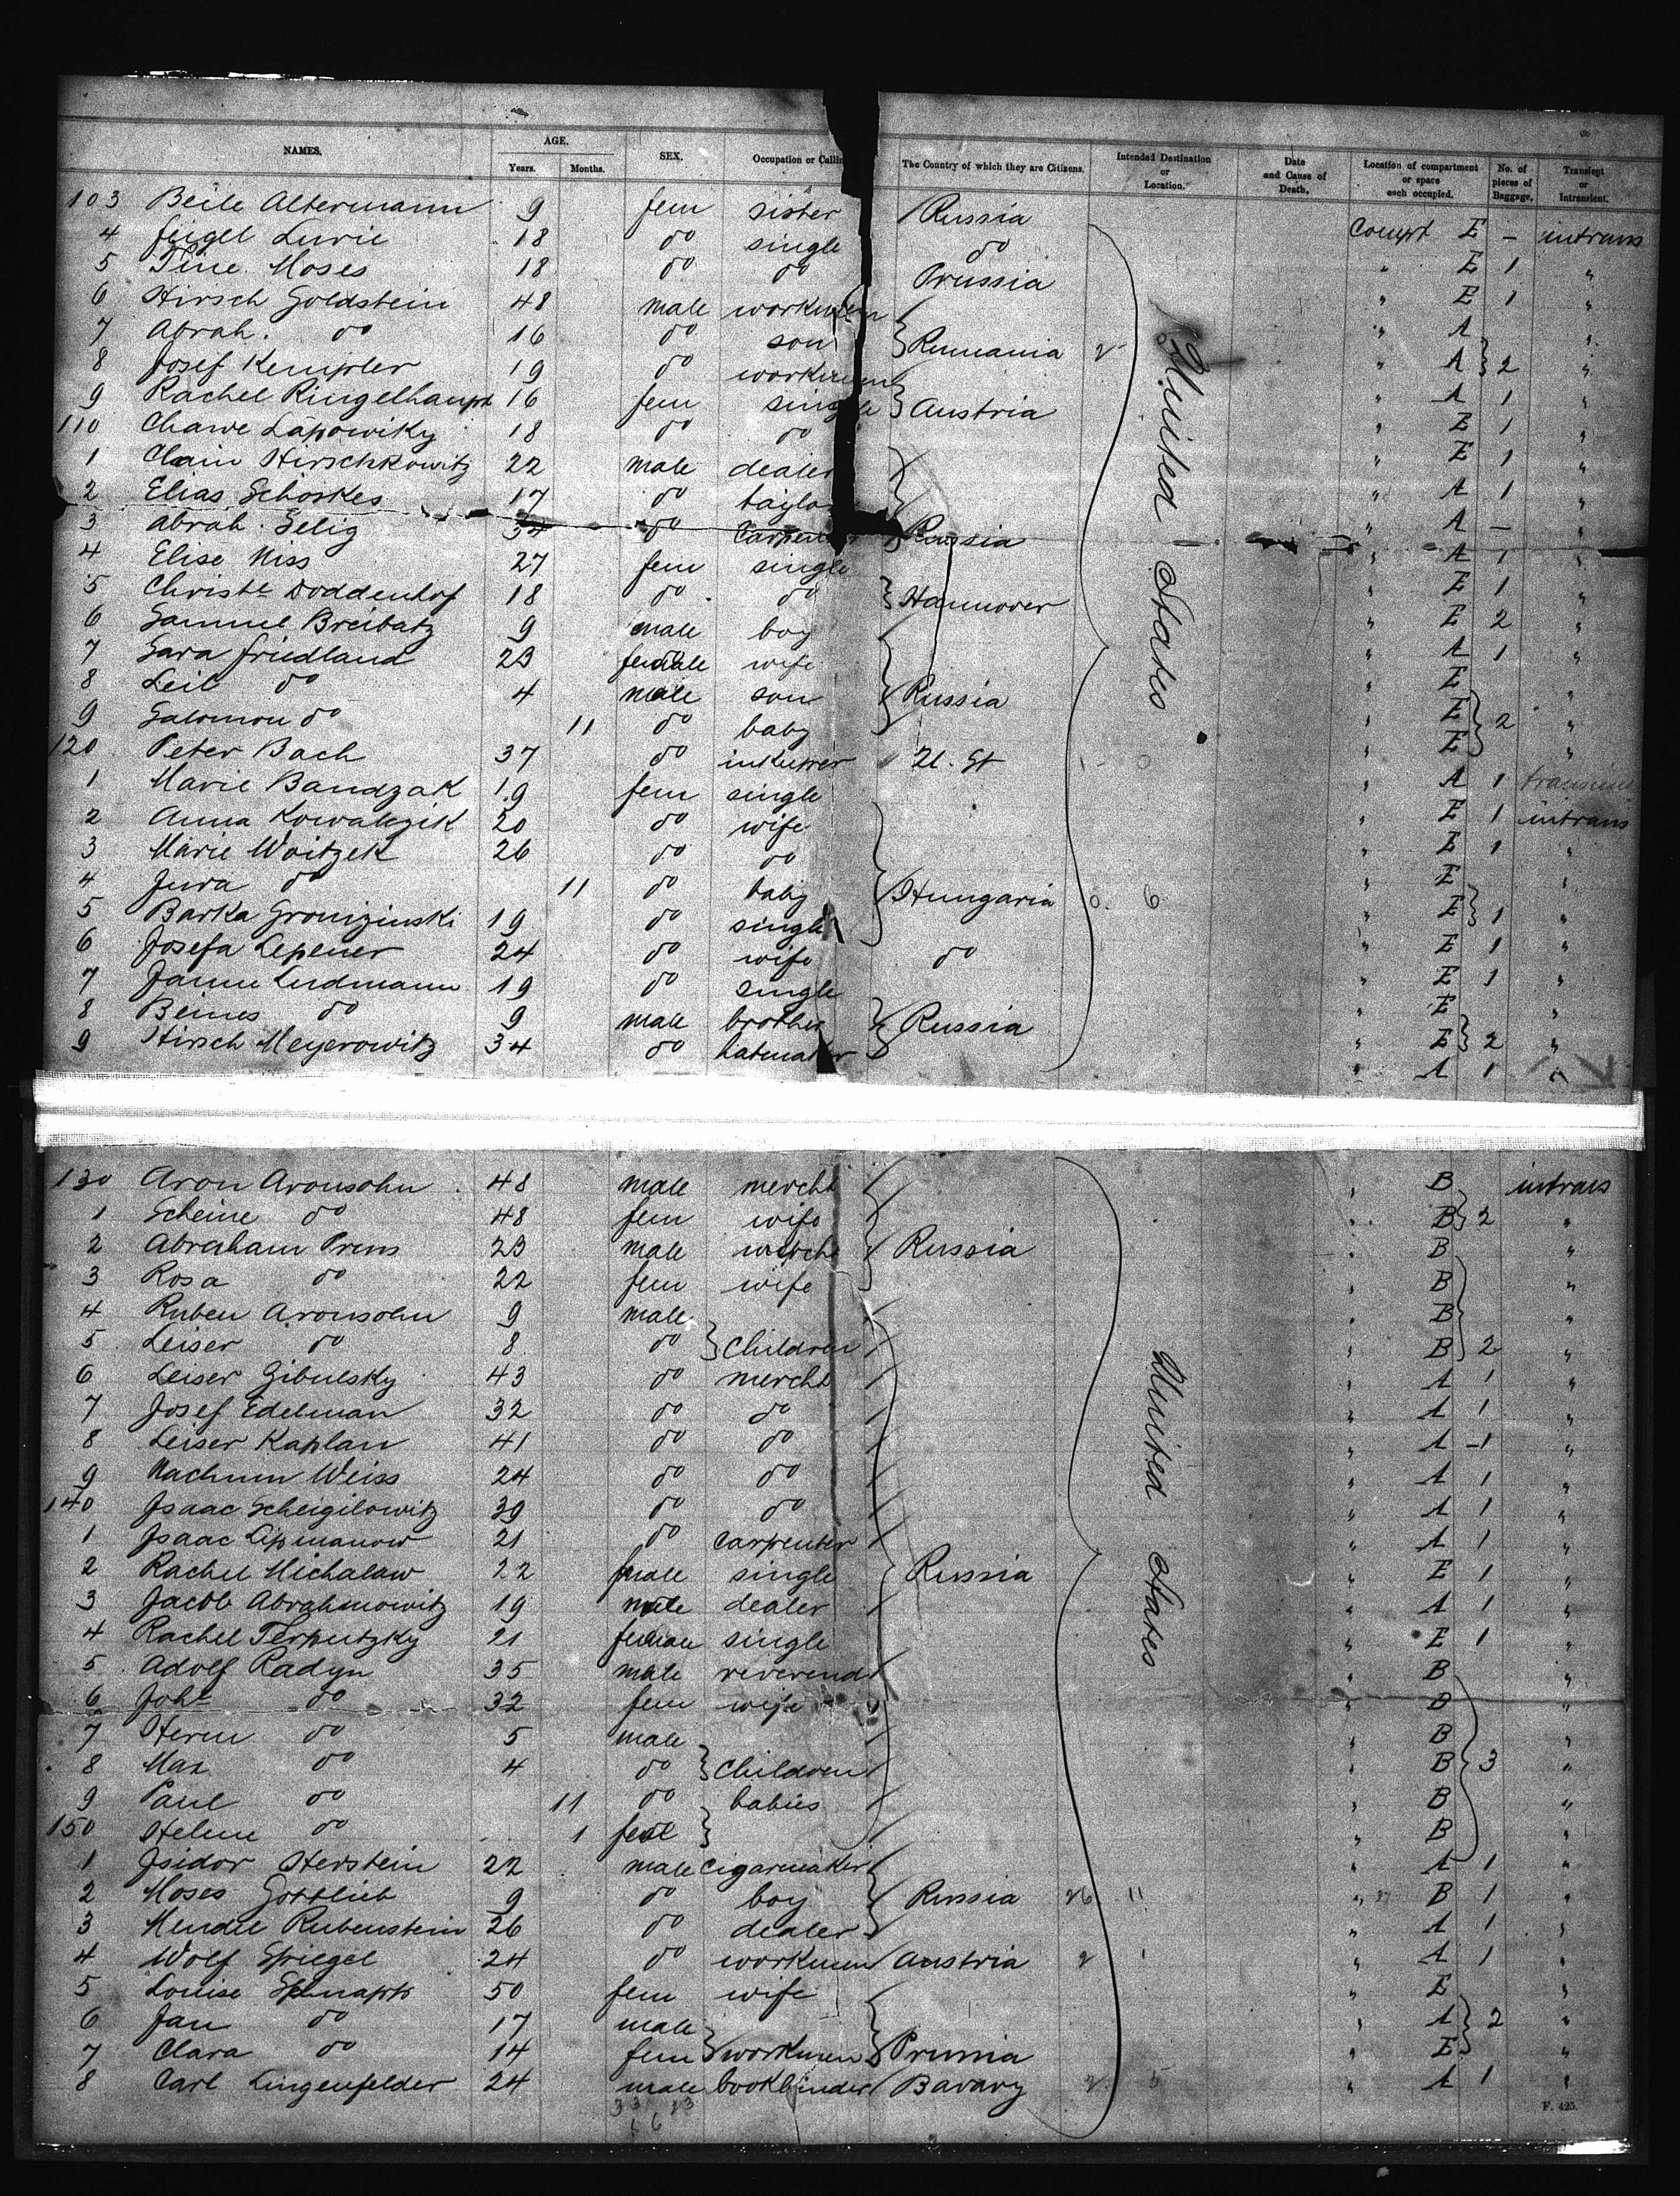 NAMES. AGE. SEX. Occupation or Callin The Country of which they are Citizens. Intended Destination or Location. Date and Cause of Death. Location of compartment or space each occupied. No. of pieces of Baggage. Transient or Intransient.
Years. Months.
103 Beile Altermann 9 fem sister Russia Compt E – intrans
4 Feigel Lurie 18 do single do " E 1 "
5 Tine Moses 18 do do Prussia " E 1 "
6 Hirsch Goldstein 48 male workmen " A "
7 Abrah. do 16 do son Rumania " A 2 "
8 Josef Kempler 19 do workmen " A 1 "
9 Rachel Ringelhaupt 16 fem single Austria " E 1 "
110 Chawe Lapowiky 18 do do " E 1 "
1 Chaim Hirschkowitz 22 male dealer " A 1 "
2 Elias Schoskes 17 do taylo " A – "
3 Abrah. Selig 34 do Carpenter Russia " A 1 "
4 Elise Niss 27 fem single " E 1 "
5 Christe Doddenhof 18 do do Hannover " E 2 "
6 Samuel Breibatz 9 male boy " A 1 "
7 Sara Friedland 23 female wife " E "
8 Leib do 4 male son Russia " E 2 "
9 Salomon do 11 do baby " E "
120 Peter Bach 37 do U. St " A 1 transient
1 Marie Bandzak 19 fem single " E 1 intrans
2 Anna Kowalczik 20 do wife " E 1 "
3 Marie Woitzek 26 do do " E "
4 Jura do 11 do baby Hungaria " E 1 "
5 Barka Gronizinski 19 do single " E 1 "
6 Josefa Lepener 24 do wife do " E 1 "
7 Janne Ludmann 19 do single " E "
8 Beines do 9 male brother Russia " E 2 "
9 Hirsch Meyerowitz 34 do hatmaker " A 1 "
United States
130 Aron Aronsohn 48 male mercht " B intrans
1 Scheine do 48 fem wife " B 2 "
2 Abraham Prens 23 male mercht Russia " B "
3 Rosa do 22 fem wife " B "
4 Ruben Aronsohn 9 male " B "
5 Leiser do 8 do Children " B 2 "
6 Leiser Zibulsky 43 do mercht " A 1 "
7 Josef Edelman 32 do do " A 1 "
8 Leiser Kaplan 41 do do " A 1 "
9 Nachum Weiss 24 do do " A 1 "
140 Isaac Scheigilowitz 39 do do " A 1 "
1 Isaac Lipmanow 21 do carpenter " A 1 "
2 Rachel Michalaw 22 female single Russia " E 1 "
3 Jacob Abrahmowitz 19 male dealer " A 1 "
4 Rachel Terputzky 21 female single " E 1 "
5 Adolf Radyn 35 male reverend " B "
6 Johe do 32 fem wife " B "
7 Herm do 5 male " B "
8 Max do 4 do Children " B 3 "
9 Paul do 11 do babies " B "
150 Helene do 1 fem " B "
1 Isidor Herstein 22 male cigarmaker " A 1 "
2 Moses Gottlieb 9 do boy Russia 26 11 " B 1 "
3 Mendel Rubenstein 26 do dealer " A 1 "
4 Wolf Spiegel 24 do workmen Austria 2 " A 1 "
5 Louise Schnapp 50 fem wife " E "
6 Jan do 17 male " A 2 "
7 Clara do 14 fem workmen Prussia " E "
8 Carl Lingenfelder 24 male bookbinder Bavary 2 5 " A 1 "
United States
33 23
66
F. 425.